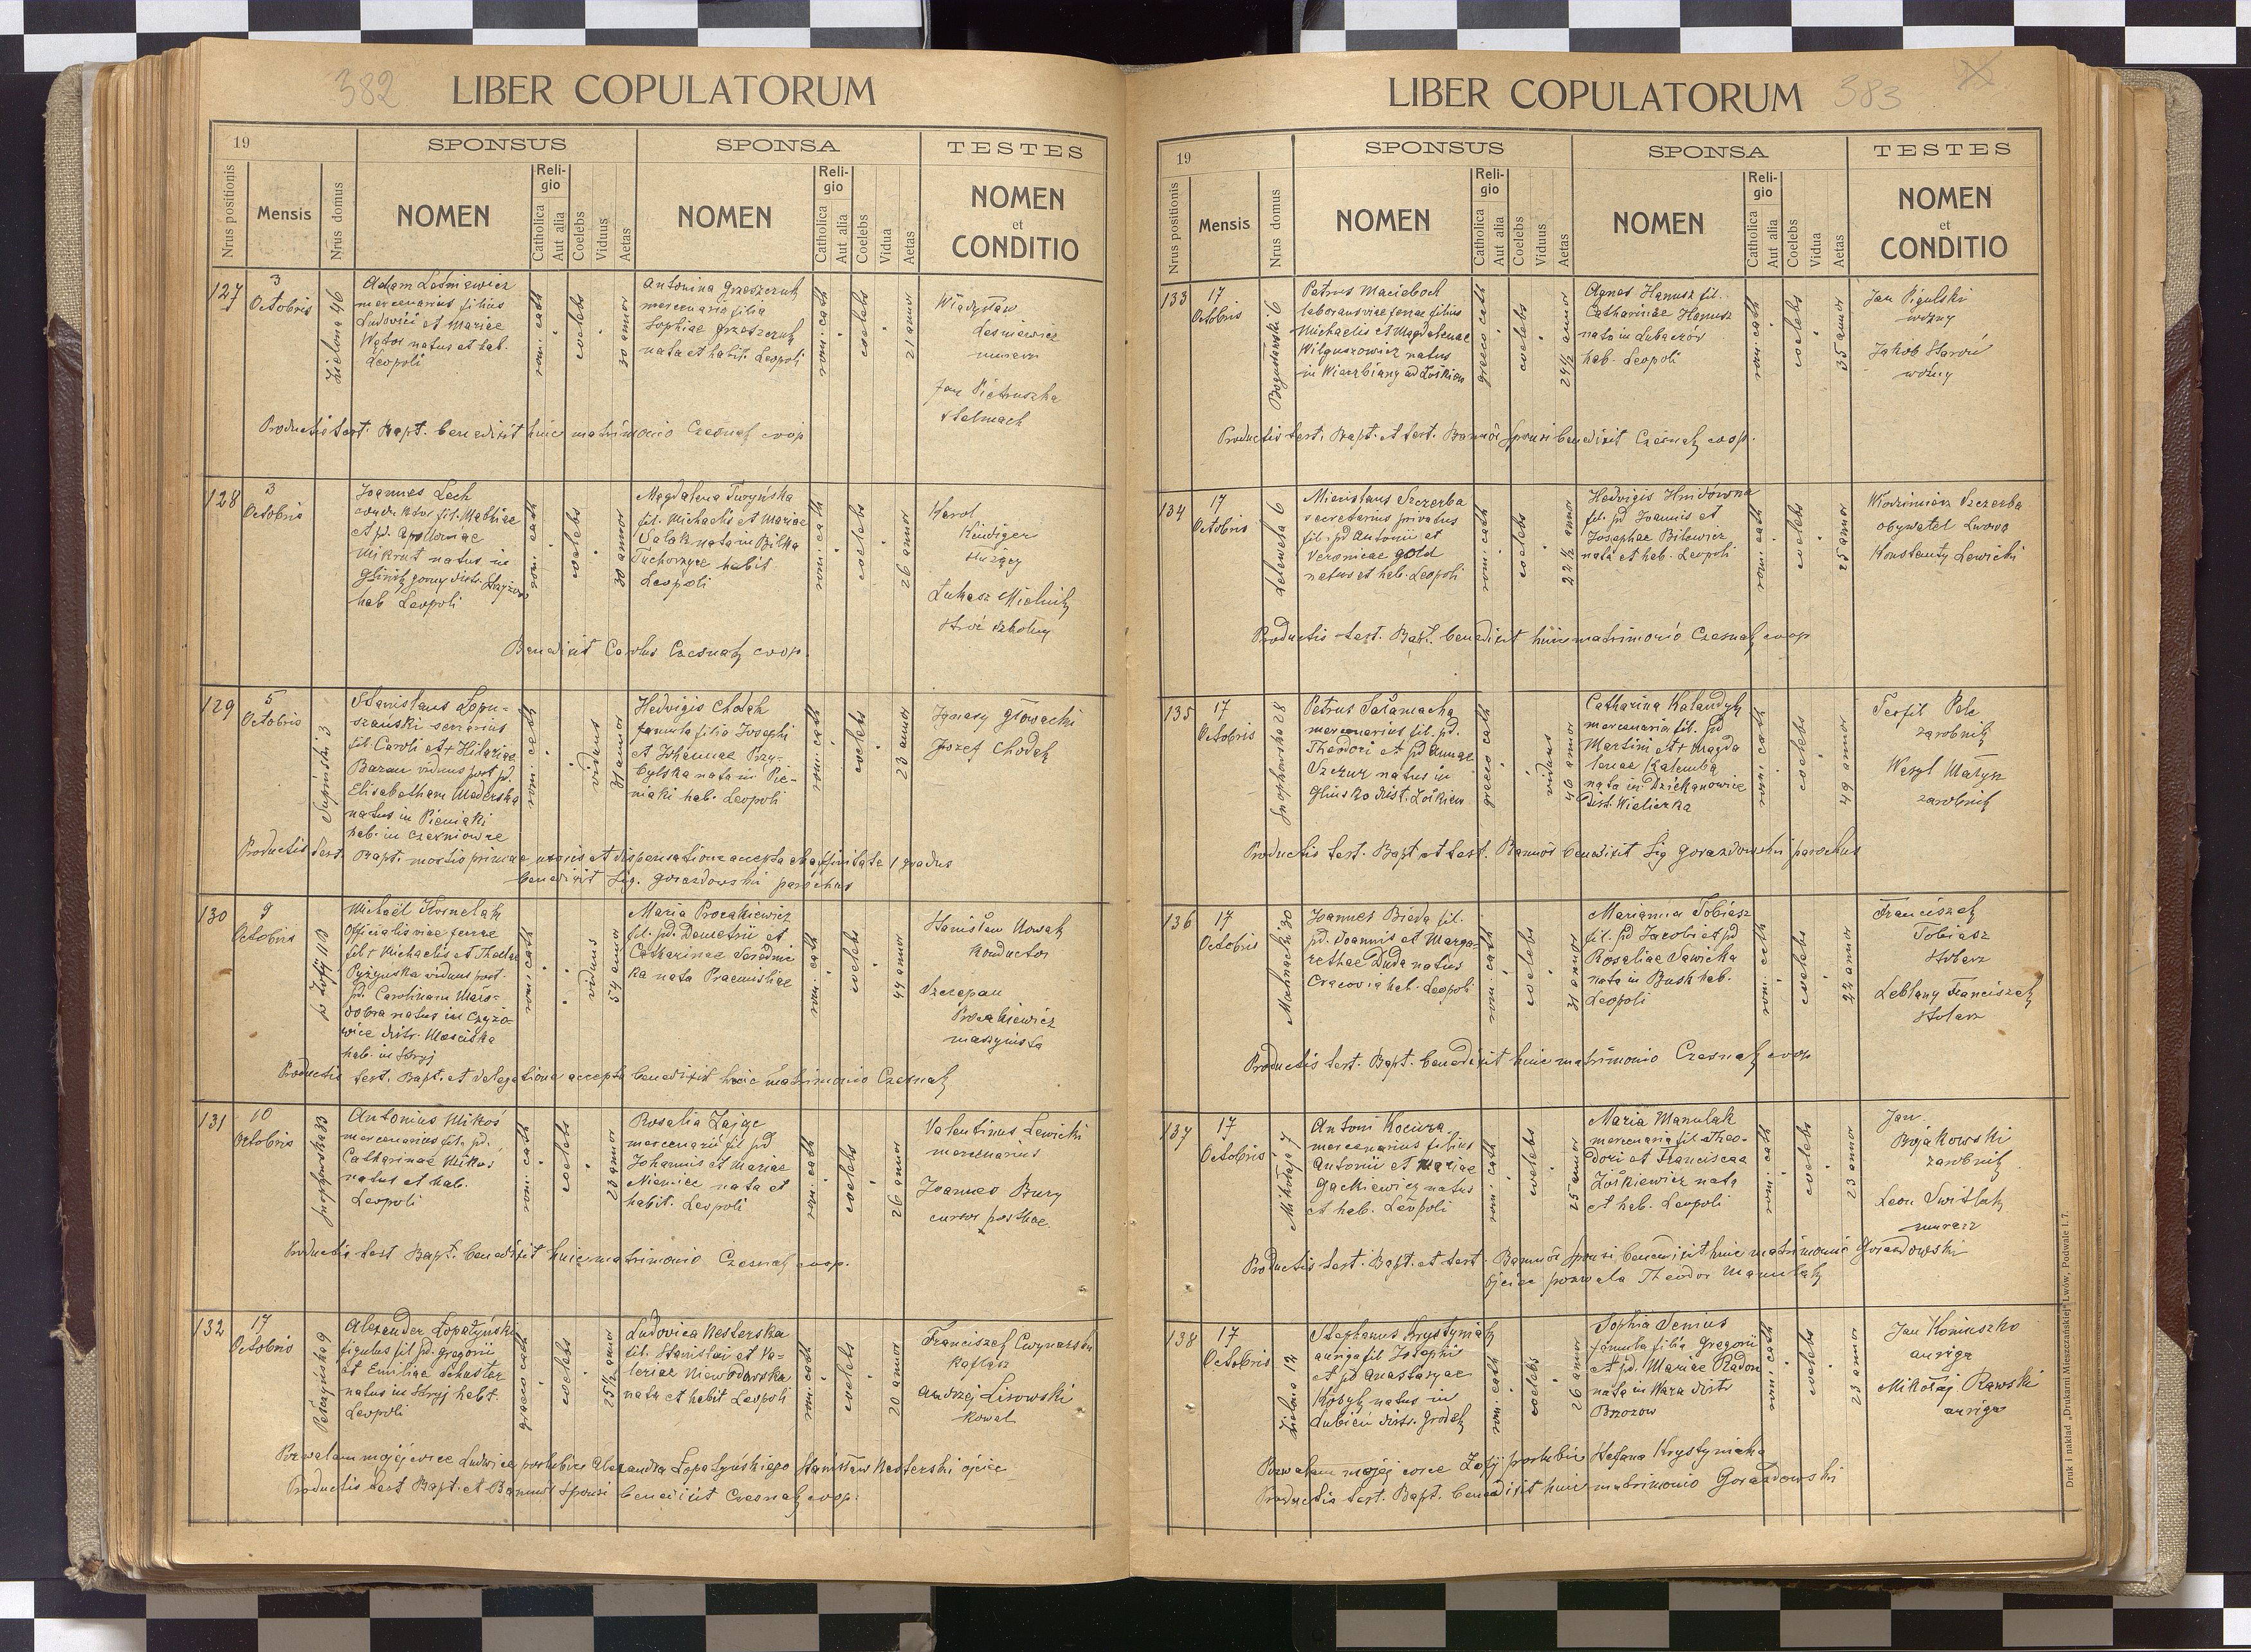 382
LIBER COPULATORUM
19
SPONSUS
SPONSA
TESTES
Nrus positionis
Mensis
Nrus domus
NOMEN
Religio
Catholica
Aut alia
Coelebs
Viduus
Aetas
NOMEN
Religio
Catholica
Aut alia
Coelebs
Vidua
Aetas
NOMEN
et
CONDITIO
127
3
Octobris
Zielona 46
Adam Leśniewicz
mercenarius filius
Ludovici et Mariae
Wątor natus et hab.
Leopoli
rom. cath
coelebs
30 annor
Antonina Grzeszczuk
mercenaria filia
Sophiae Grzeszczuk
nata et habit. Leopoli
rom. cath
coelebs
21 annor
Władysław
Leśniewicz
murarz
Jan Pietruszka
stelmach
Productis test. Bapt. benedixit huic matrimonio Czesnak coop
128
3
Octobris
Joannes Lech
conductor fil. Mathiae
et pd. Apolloniae
Mikrut natus in
hab Leopoli
rom. cath
coelebs
30 annor
Magdalena Turyńska
fil. Michaelis et Mariae
Walak nata in Bilka
habit
Leopoli
rom. cath
coelebs
26 annor
Karol
Kindiger
służący
Łukasz Mielnik
stróż szkolny
Benedixit Carolus Czesnak coop.
129
5
Octobris
Supińskiego 3
Stanislaus Łopu-
szański
fil. Caroli et + Hilariae
Baran viduus post pd.
Elisabetham Maderska
natus in Pieniaki
hab. in Czerniowce
rom. cath
viduus
31 annor
Hedvigis Chodak
famula filia Josephi
et Johannae Przy-
bylska nata in Pie-
niaki hab. Leopoli
rom. cath
coelebs
23 annor
Ignacy Głowacki
Józef Chodak
Productis test. Bapt. mortis primae uxoris et dispensatione accepta ab affinitate I gradus
benedixit Sig. Gorazdowski parochus
130
9
Octobris
św Zofij 11 B
Michaël Kornelak
Officialis viae ferrae
fil + Michaelis et Theclae
Pyżyńska viduus post.
pd. Carolinam Mało-
dobra natus in Czyżo-
wice distr. Mościska
hab. in Stryj
rom. cath
viduus
54 annor
Maria Procakiewicz
fil. pd. Demetrii et
Catharinae Seredni-
ka nata Praemisliae
rom. cath
coelebs
44 annor
Stanisław Nowak
konductor
Szczepan
Procakiewicz
maszynista
Productis test. Bapt. et delegatione accepta benedixit huic matrimonio Czesnak
131
10
Octobris
Snopkowska 33
Antonius Mikoś
mercenarius fil. pd.
Catharinae Mikoś
natus et hab.
Leopoli
rom. cath
coelebs
23 annor
Rosalia Zając
mercenarii fil pd
Johannis et Mariae
Niemiec nata et
habit. Leopoli
rom. cath
coelebs
26 annor
Valentinus Lewicki
mercenarius
Joannes Bury
cursor postae
Productis test Bapt. benedixit huic matrimonio Czesnak coop.
132
17
Octobris
Pełczyńska 9
Alexander Łopatyński
figulus fil pd. Gregorii
et Emiliae Schuster
natus in Stryj habt.
Leopoli
graeco cath
coelebs
25½ annor
Ludovica Nesterska
fil. Stanislai et Va-
leriae Niewodowska
nata et habit Leopoli
rom. cath
coelebs
20 annor
Franciszek Cwynarski
kaflarz
Andrzej Lisowski
kowal
Pozwalam mojej córce Ludwice poślubić Alexandra Łopatyńskiego Stanisław Nesterski ojciec
Productis test Bapt. et Bannor Sponsi benedixit Czesnak coop.
LIBER COPULATORUM
383
19
SPONSUS
SPONSA
TESTES
Nrus positionis
Mensis
Nrus domus
NOMEN
Religio
Catholica
Aut alia
Coelebs
Viduus
Aetas
NOMEN
Religio
Catholica
Aut alia
Coelebs
Vidua
Aetas
NOMEN
et
CONDITIO
133
17
Octobris
Bogusławski 6
Petrus Macieboch
laborans viae ferrae filius
Michaelis et Magdalenae
Wilguszowicz natus
in Wierzbiany ad Żółkiew
graeco cath
coelebs
24½ annor
Agnes Hanusz fil.
Catharinae Hanusz
nata in Lubaczów
hab. Leopoli
rom. cath
coelebs
35 annor
Jan Pigulski
woźny
Jakób
woźny
Productis test. Bapt. et test. Bannor sponsi benedixit Czesnak coop.
134
17
Octobris
Lelewela 6
Miecislaus Szczerba
secretarius privatus
fil. pd Antonii et
Veronicae Gold
natus et hab. Leopoli
rom. cath
coelebs
22½ annor
Hedvigis Hnidówna
fil. pd Joannis et
Josephae Bilewicz
nata et hab. Leopoli
rom. cath
coelebs
25 annor
Włodzimierz Szczerba
obywatel Lwowa
Konstanty Lewicki
Productis test. Bapt. benedixit huic matrimonio Czesnak coop
135
17
Octobris
Snopkowska 28
Petrus Sałamacha
mercenarius fil. pd.
Theodori et pd Annae
Szczur natus in
Glinsko dist. Żółkiew
graeco cath
viduus
46 annor
Catharina Kalandyk
mercenaria fil. pd
Martini et + Magda
lenae Kalemba
nata in Dziekanowice
Dist. Wieliczka
rom. cath
coelebs
49 annor
Teofil Pelc
zarobnik
Wasyl Małysz
zarobnik
Productis test. Bapt et test. Bannor benedixit Sig Gorazdowski parochus
136
17
Octobris
Mochnackiego 30
Joannes Bieda fil.
pd. Joannis et Marga-
rethae Duda natus
Cracovia hab. Leopoli
rom. cath
coelebs
31 annor
Marianna Tobiasz
fil. pd Jacobi et pd
Rosaliae Sawicka
nata in Busk hab.
Leopoli
rom. cath
coelebs
22 annor
Franciszek
Tobiasz
stolarz
Leblany Franciszek
stolarz
Productis test. Bapt. benedixit huic matrimonio Czesnak coop
137
17
Octobris
Mikołaja 7
Antoni Kociuza
mercenarius filius
Antonii et Mariae
Gackiewicz natus
et hab. Leopoli
rom. cath
coelebs
25 annor
Maria Manulak
mercenaria fil Theo-
dori et Franciscae
Żółkiewicz nata
et hab. Leopoli
rom. cath
coelebs
23 annor
Jan
Bojakowski
zarobnik
Leon Switlak
murarz
Productis test. Bapt. et test. Bannor sponsi, benedixit huic matrimonio Gorazdowski
Ojciec pozwala Theodor Manulak
138
17
Octobris
Zielona 12
Stephanus Krystyniak
auriga fil Josephi
et pd Anastazyae
Kobyk natus in
Lubień distr. Grodek
rom. cath
coelebs
26 annor
Sophia Senius
famula filia Gregorii
et pd. Mariae Radon
nata in Wara distr
Brzozow
rom. cath
coelebs
23 annor
Jan Koniuszko
auriga
Mikołaj Rawski
auriga
Pozwalam mojej corce Zofij poslubic Stefana Krystyniaka
Productis test. Bapt. benedixit huic matrimonio Gorazdowski
Druk i nakład „Drukarni Mieszczańskiej" Lwów, Podwale l. 7.